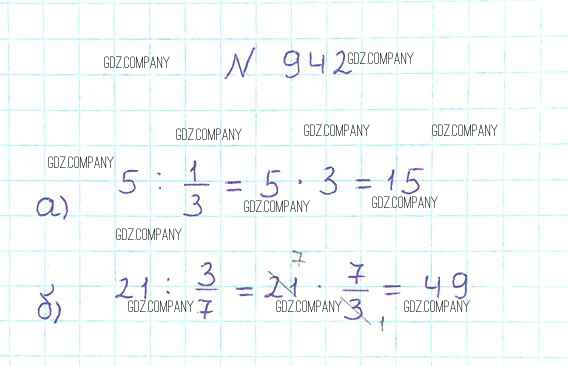 GDZ.COMPANY N 942 GDZ.COMPANY
GDZ.COMPANY GDZ.COMPANY GDZ.COMPANY
GDZ.COMPANY
а) 5 : 1/3 = 5 · 3 = 15
GDZ.COMPANY GDZ.COMPANY
GDZ.COMPANY
7
б) 21 : 3/7 = 21 · 7/3 = 49
1
GDZ.COMPANY GDZ.COMPANY GDZ.COMPANY